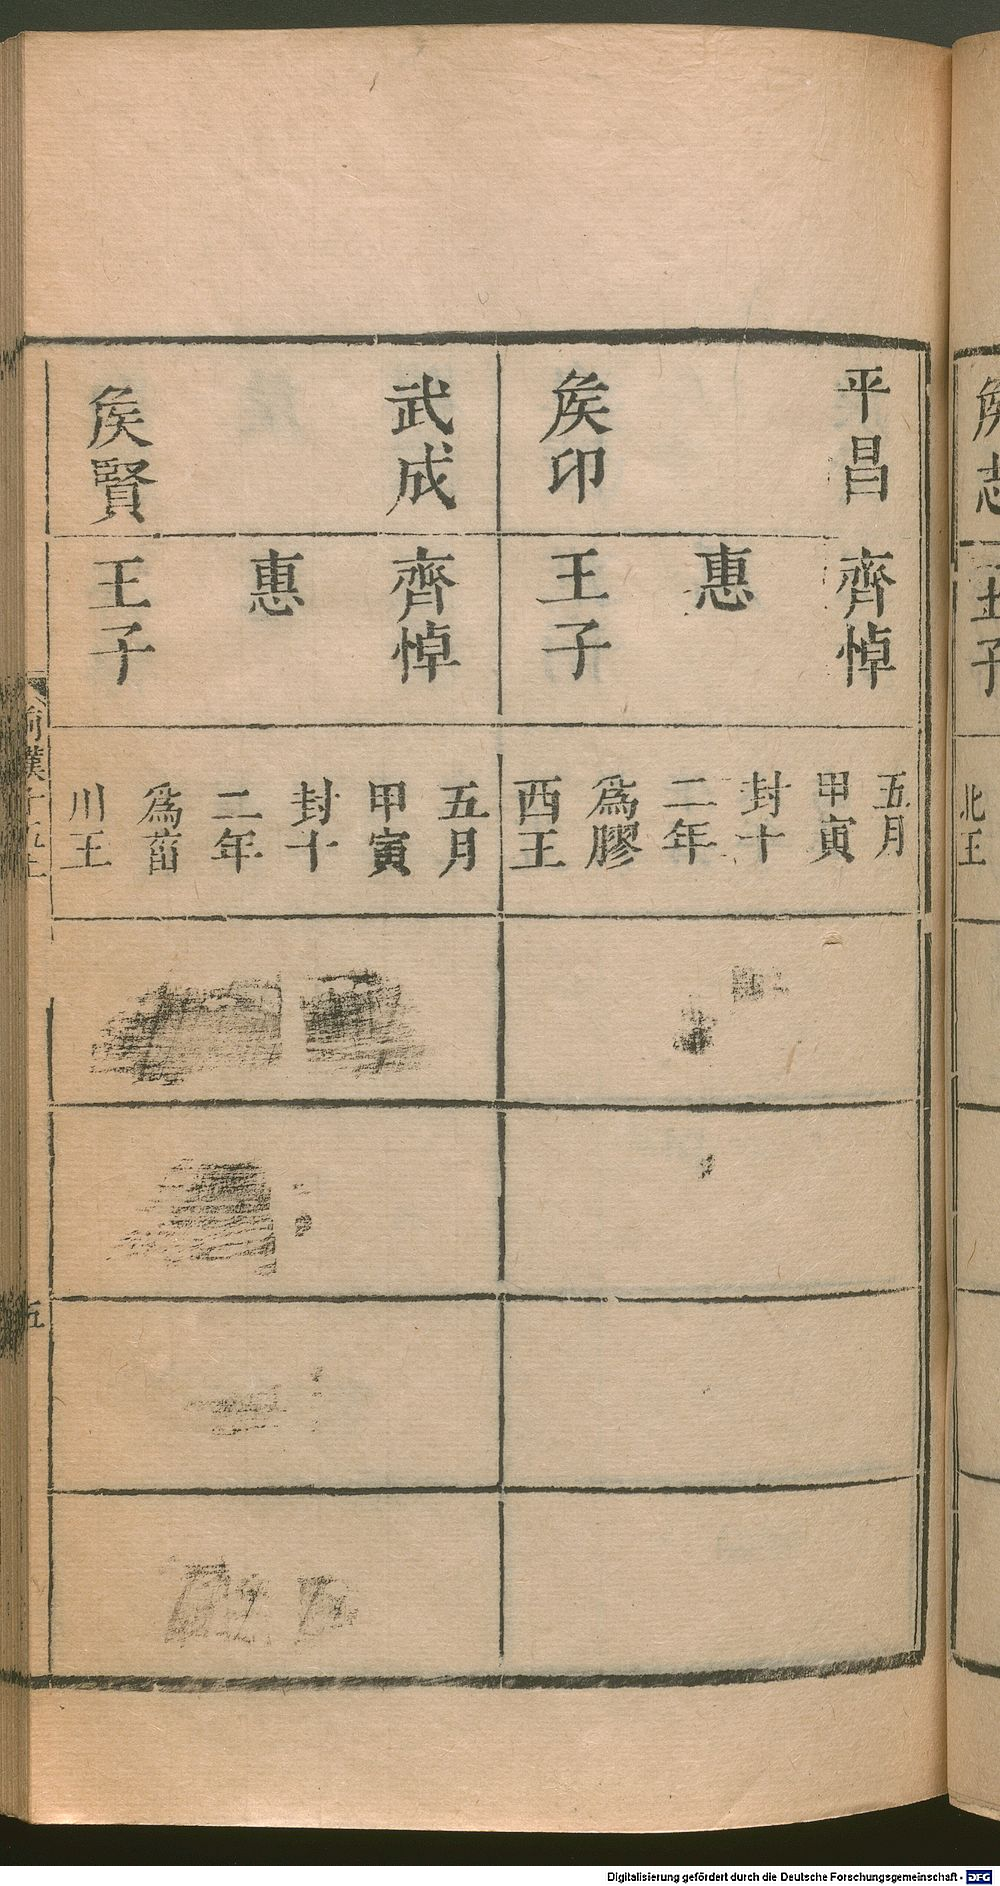 平昌
侯印
齊悼
惠
王子
五月
甲寅
封十
二年
為膠
西王
武成
侯賢
齊悼
惠
王子
五月
甲寅
封十
二年
為菑
川王
五
王子
北王
Digitalisierung gefördert durch die Deutsche Forschungsgemeinschaft - DFG